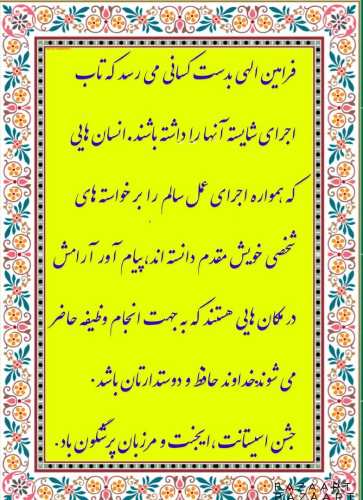 فرامین الهی بدست کسانی می رسد که تاب
اجرای شایسته آنها را داشته باشند. انسان هایی
که همواره اجرای عمل سالم را بر خواسته های
شخصی خویش مقدم دانسته اند، پیام آور آرامش
در مکان هایی هستند که به جهت انجام وظیفه حاضر
می شوند. خداوند حافظ و دوستدارتان باشد.
جشن اسیستانت، ایجنت و مرزبان پرشگون باد.
RAZAART